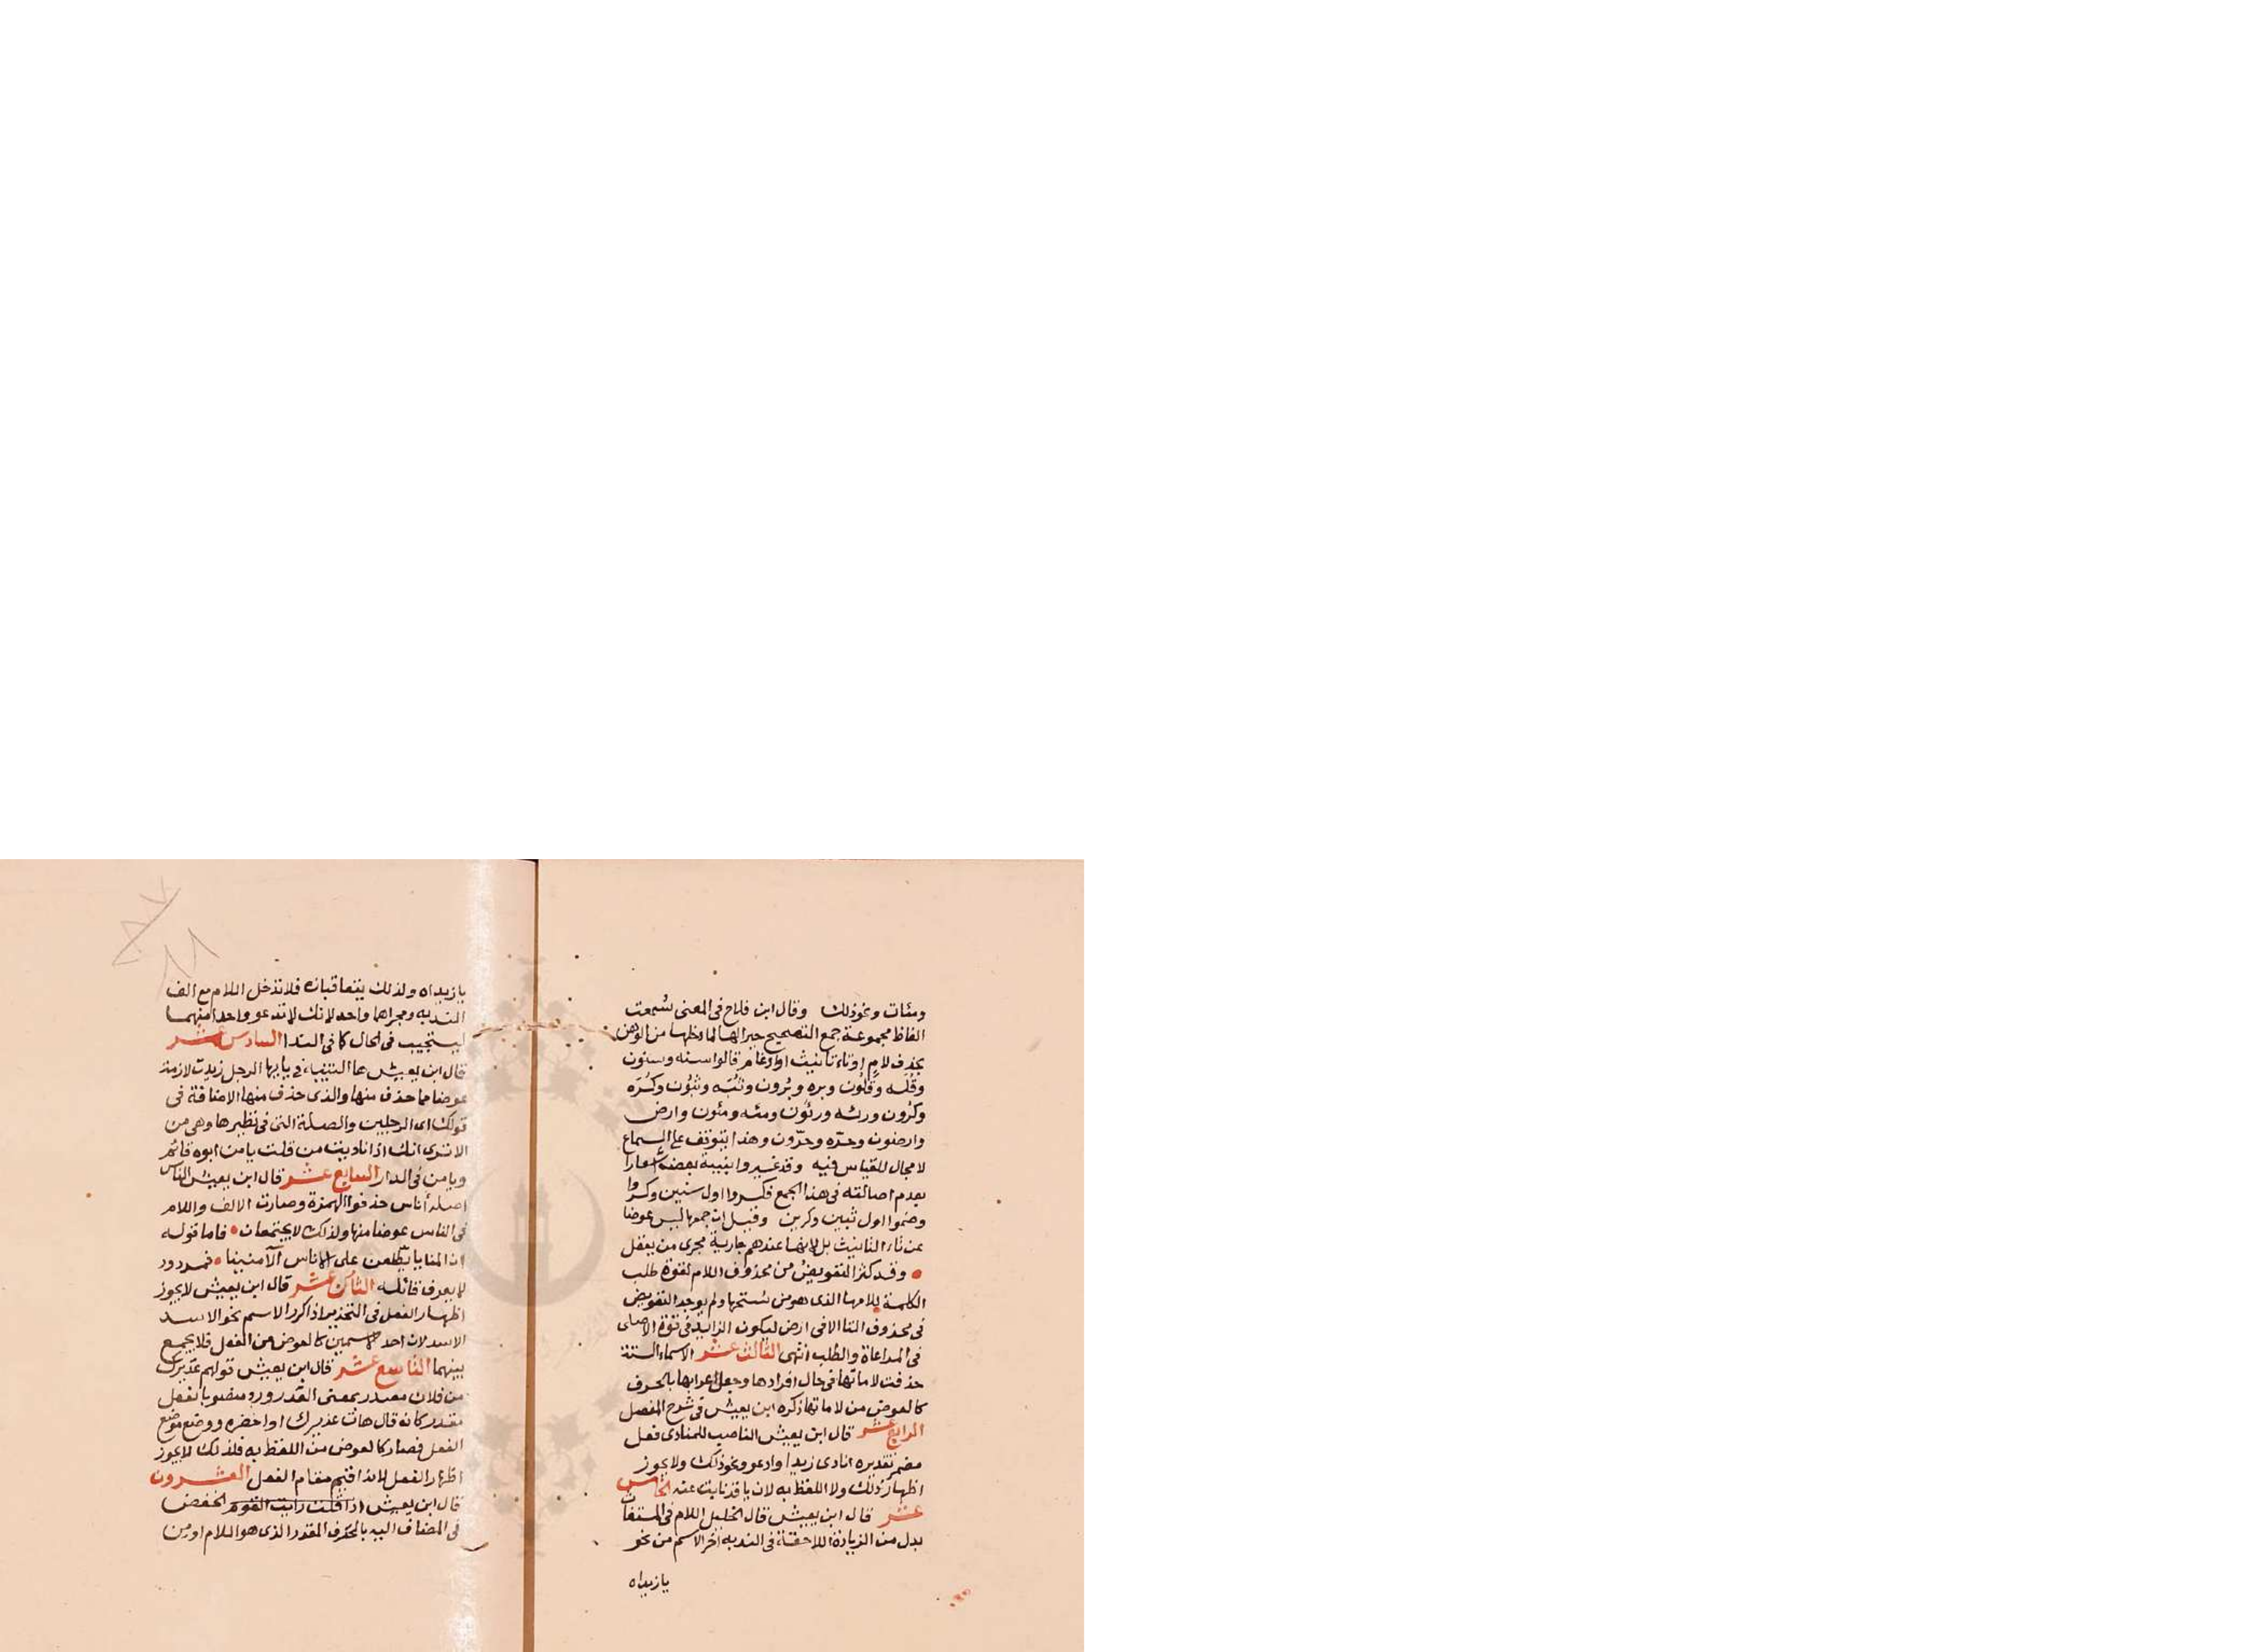 ومئات ونحو ذلك وقال ابن فلاح في المغنى سُمعت
الفاظ مجموعة جمع التصحيح جبرا لها لما دخلها من الوهن
بحذف لام او تاء تانيث او ادغام قالوا سنه وسنون
وقُلَه وقُلُون وبره وبُرون وثُبَه وثبُون وكُرَه
وكُرون ورئه ورئون ومئه ومئون وارض
وارضون وحرّه وحرّون وهذا يتوقف على السماع
لا مجال للقياس فيه وقد غيروا بنية بعضه اشعارا
بعدم اصالته في هذا الجمع فكسروا اول سنين وكسروا
وضموا اول ثبين وكرين وقيل ان جمعها ليس عوضا
عن تاء التانيث بل لانها عندهم جارية مجرى من يعقل
وقد كثر التعويض من محذوف اللام لقوة طلب
الكلمة للامها الذى هو من سنخها ولم يوجد التعويض
في محذوف التا الا في ارض ليكون الزايد في قوة الاصلى
في المراعاة والطلب انتهى الثالث عشر الاسماء الستة
حذفت لاماتها في حال افرادها وجعل اعرابها بالحرف
كالعوض من لاماتها ذكره ابن يعيش في شرح المفصل
الرابع عشر قال ابن يعيش الناصب للمنادى فعل
مضمر تقديره انادى زيدا وادعو ونحو ذلك ولا يجوز
اظهار ذلك ولا اللفظ به لان يا قد نابت عنه الخامس
عشر قال ابن يعيش قال الخليل اللام في المستغاث
بدل من الزيادة اللاحقة في الندبه اخر الاسم من نحو
يا زيداه
يا زيداه ولذلك يتعاقبان فلا تدخل اللام مع الف
الندبه ومجراهما واحد لانك لا تدعو واحدا منهما
ليستجيب في الحال كما في الندا السادس عشر
قال ابن يعيش ها التنبيه في يا ايها الرجل زيدت لازمة
عوضا مما حذف منها والذى حذف منها الاضافة في
قولك اى الرجلين والصلة التى في نظيرها وهى من
الا ترى انك اذا ناديت من قلت يا من ابوه قائم
ويا من في الدار السابع عشر قال ابن يعيش الناس
اصله أناس حذفوا الهمزة وصارت الالف واللام
في الناس عوضا منها ولذلك لا يجتمعان فاما قوله
ان المنايا يطّلعن على الاناس الآمنينا فمردود
لا يعرف قائله الثامن عشر قال ابن يعيش لا يجوز
اظهار الفعل في التحذير اذا كرر الاسم نحو الاسد
الاسد لان احد الاسمين كالعوض من الفعل فلا يجمع
بينهما التاسع عشر قال ابن يعيش قولهم عذيرك
من فلان مصدر بمعنى العذر ورد منصوبا بفعل
مقدر كانه قال هات عذيرك او احضره ووضع موضع
الفعل فصار كالعوض من اللفظ به فلذلك لا يجوز
اظهار الفعل لانه اقيم مقام الفعل العشرون
قال ابن يعيش اذا قلت رايت القوم الخفض
في المضاف اليه بالحرف المقدر الذى هو اللام او من